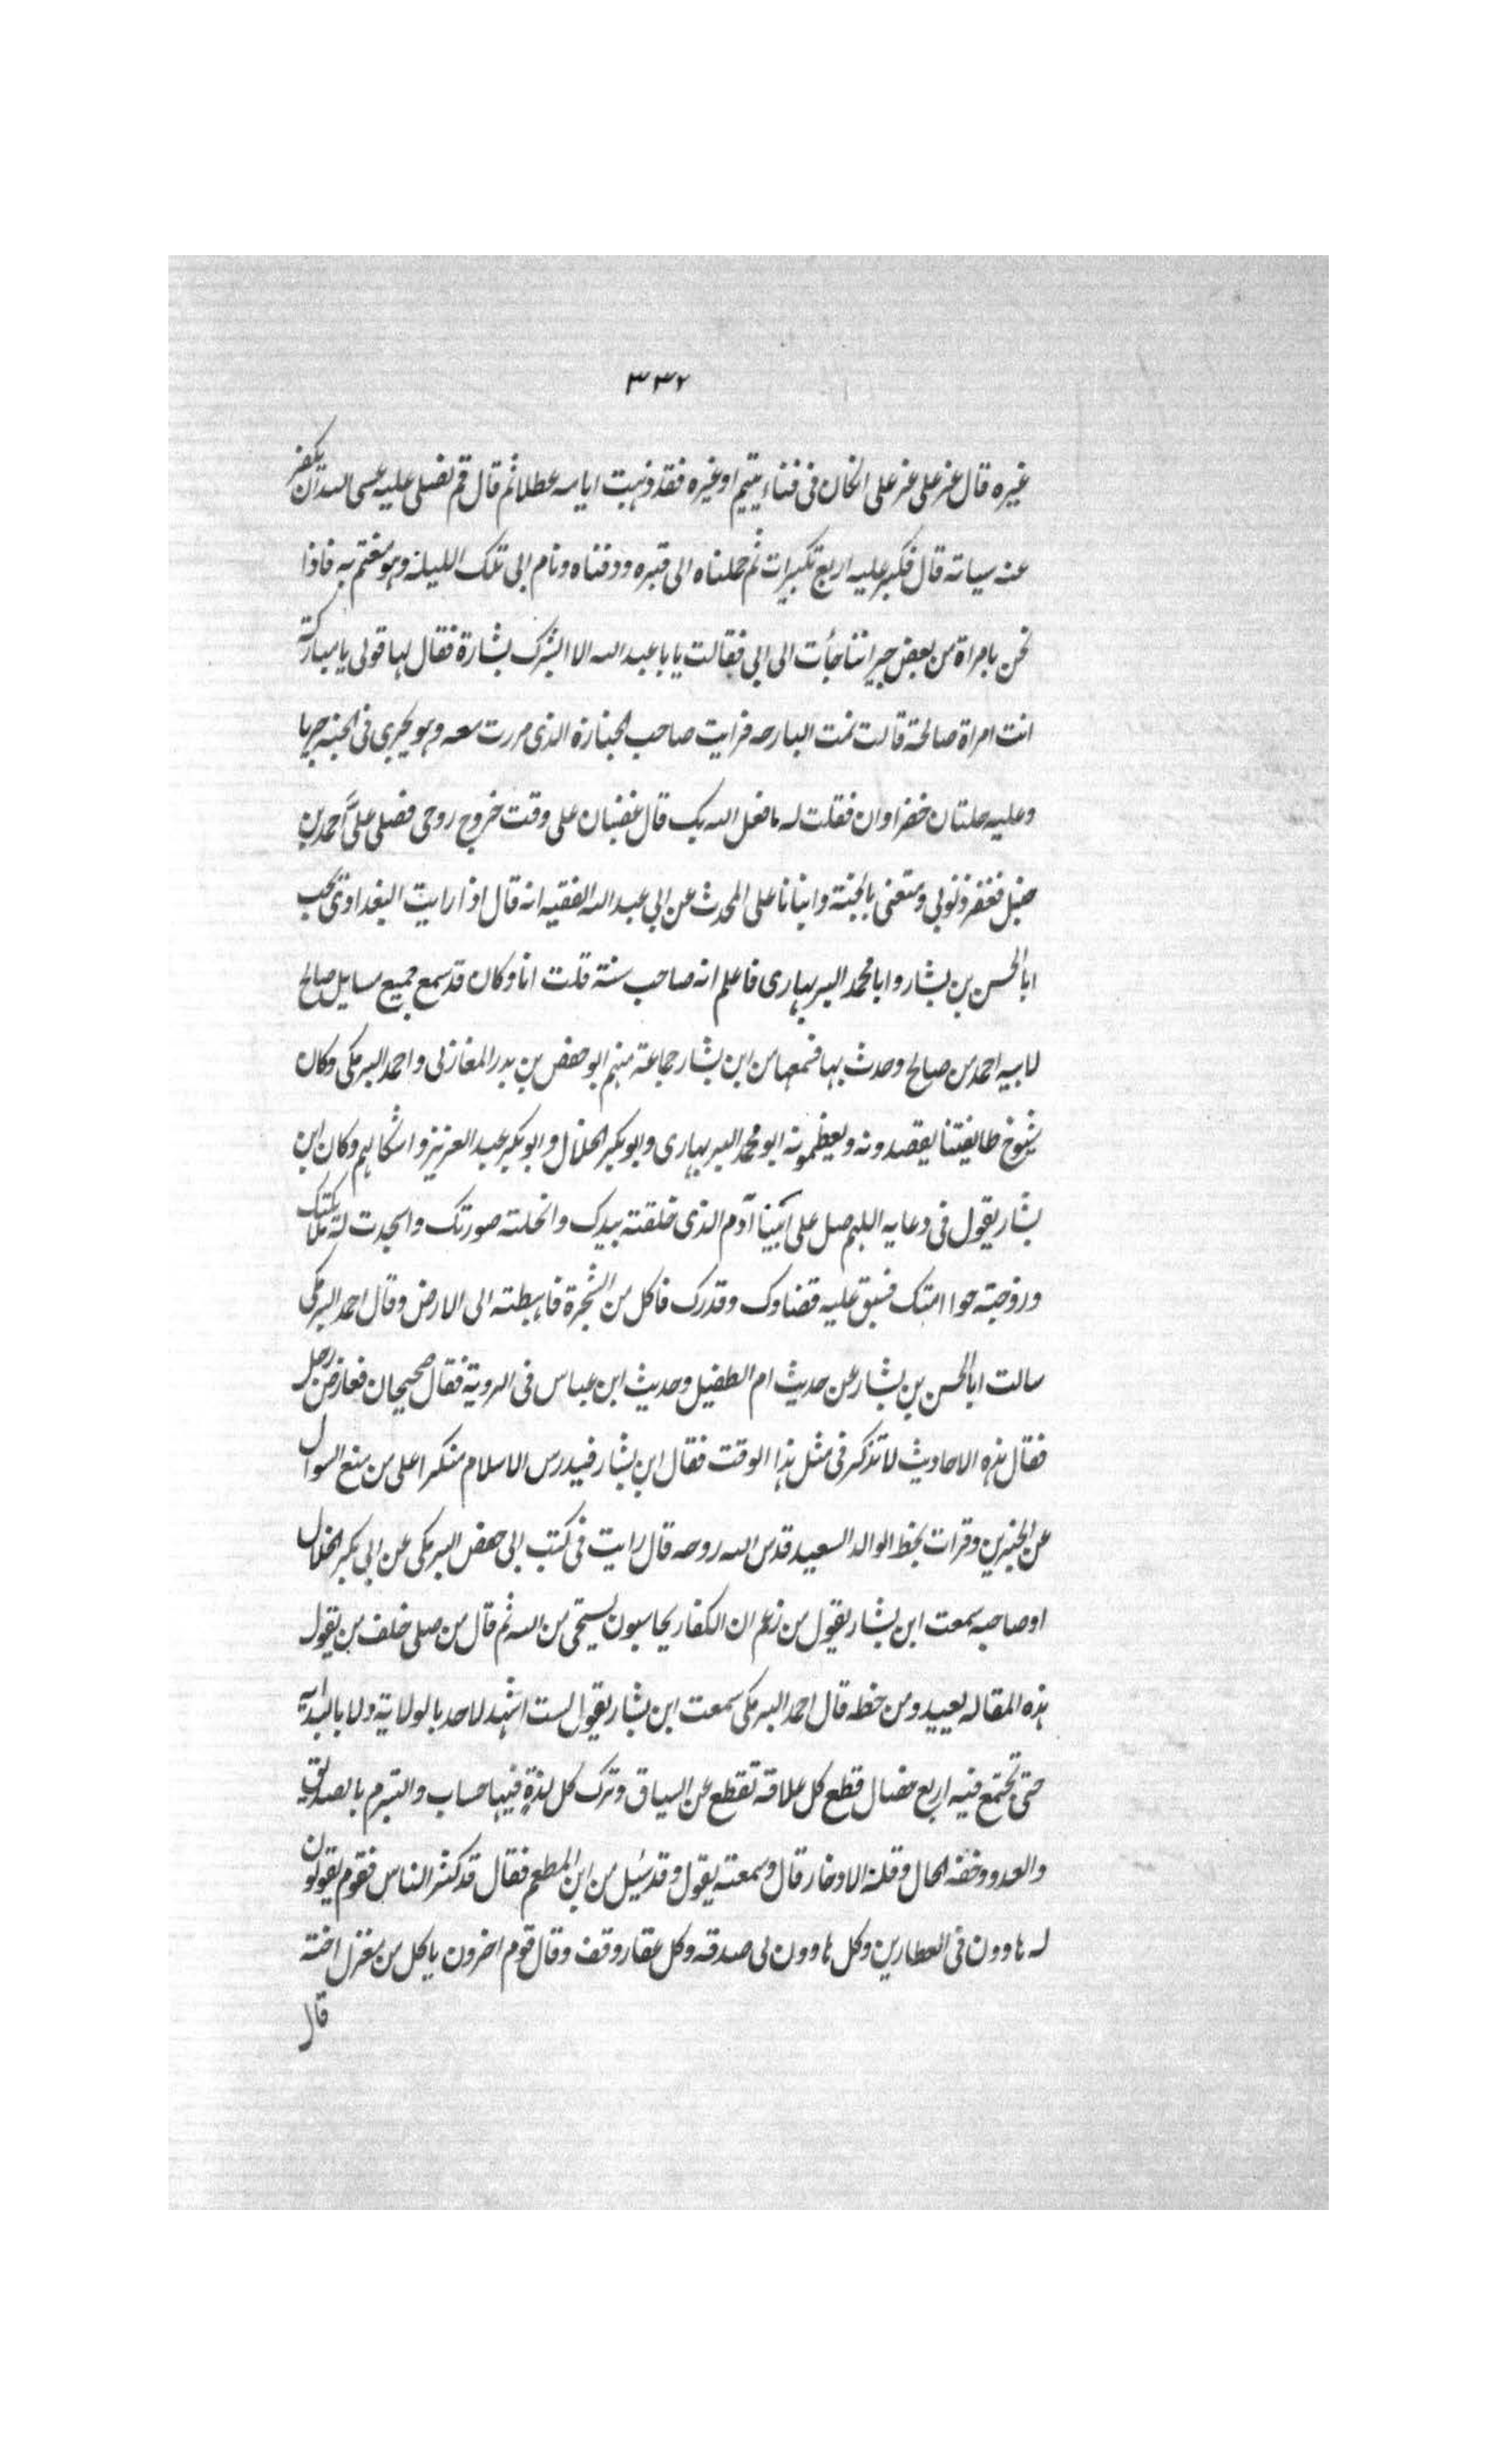 ٣٣٢
غيره قال عز علي عز علي الخان في فناء يتيم او غيره فقد ذهبت ايامه عطلا ثم قال قم نصلي عليه عسى الله ان يكفر
عنه سياته قال فكبر عليه اربع تكبيرات ثم حملناه الى قبره ودفناه ونام ابي تلك الليلة وهو مغتم به فاذا
نحن بامراة من بعض جيراننا جأت الى ابي فقالت يابا عبد الله الا ابشرك بشارة فقال لها قولي يا مباركة
انت امراة صالحة قالت نمت البارحه فرايت صاحب الجنازة الذي مررت معه وهو يجري في الجنه جريا
وعليه حلتان خضراوان فقلت له ما فعل الله بك قال غضبان علي وقت خروج روحي فصلى عليّ احمد بن
حنبل فغفر ذنوبي ومتعني بالجنة وانبانا علي المحدث عن ابي عبد الله الفقيه انه قال اذا رايت البغدادي يحب
ابا الحسن بن بشار وابا محمد البربهاري فاعلم انه صاحب سنة قلت انا وكان قد سمع جميع مسايل صالح
لابيه احمد من صالح وحدث بها فسمعها من ابن بشار جماعة منهم ابو حفص بن بدر المغازلي واحمد البرمكي وكان
شيوخ طايفتنا يقصدونه ويعظمونه ابو محمد البربهاري وابو بكر الخلال وابو بكر عبد العزيز واشكالهم وكان ابن
بشار يقول في دعايه اللهم صل على ابينا آدم الذي خلقته بيدك وانحلته صورتك واسجدت له ملائكتك
وزوجته حوا امتك فسبق عليه قضاوك وقدرك فاكل من الشجرة فاهبطته الى الارض وقال احمد البرمكي
سالت ابا الحسن بن بشار عن حديث ام الطفيل وحديث ابن عباس في الروية فقال صحيحان فعارض رجل
فقال هذه الاحاديث لا تذكر في مثل هذا الوقت فقال ابن بشار فيدرس الاسلام منكرا على من منع السوال
عن الخبرين وقرات بخط الوالد السعيد قدس الله روحه قال رايت في كتب ابي حفص البرمكي عن ابي بكر الخلال
او صاحبه سمعت ابن بشار يقول من زعم ان الكفار يحاسبون يستحي من الله ثم قال من صلى خلف من يقول
هذه المقاله يعيد ومن خطه قال احمد البرمكي سمعت ابن بشار يقول لست اشهد لاحد بالولاية ولا بالبدلية
حتى تجتمع فيه اربع خصال قطع كل علاقه تقطع عن السياق وترك كل لذة فيها حساب والتبرم بالصديق
والعدو وخفه الحال وقلة الادخار قال وسمعته يقول وقد سئيل من اين المطعم فقال قد كثر الناس فقوم يقولون
له هاوون في العطارين وكل هاوون لي صدقه وكل عقار وقف وقال قوم اخرون ياكل من مغزل اخته
قال